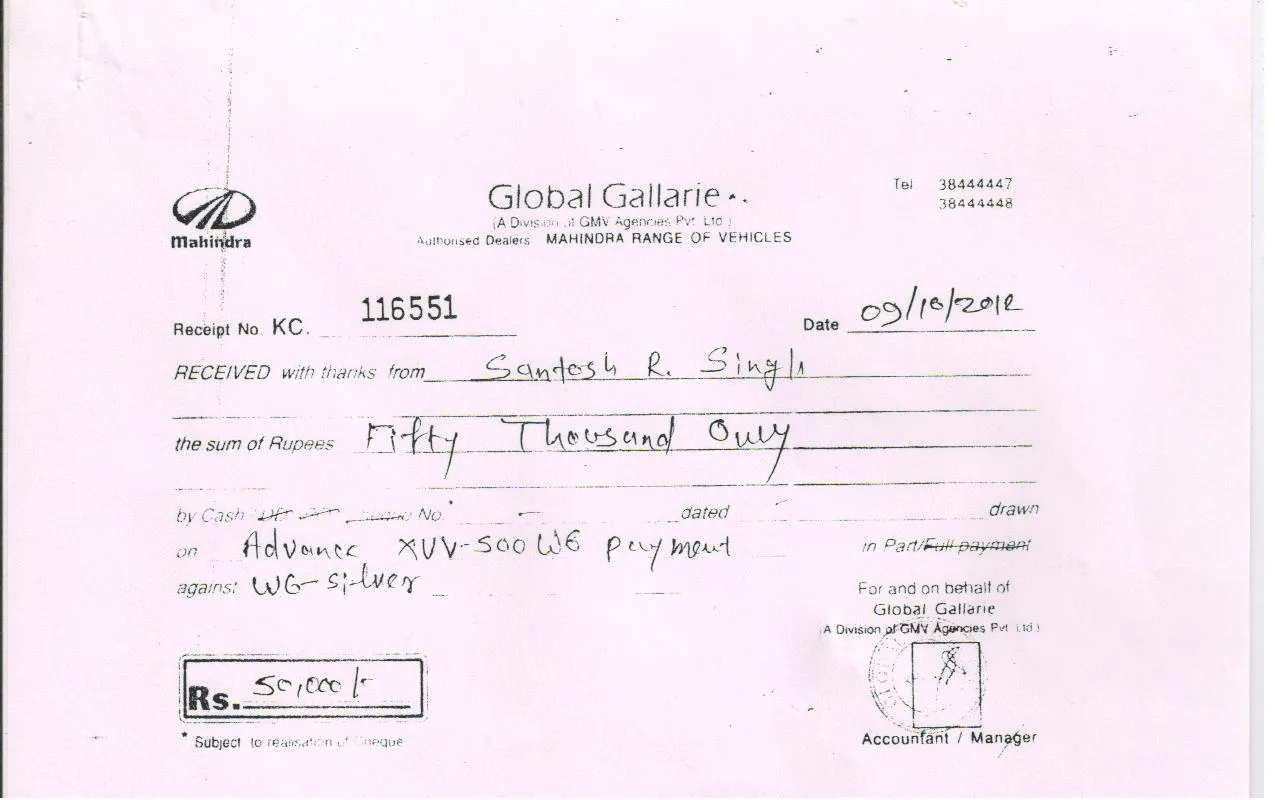 Tel 38444447
38444448
Mahindra
Global Gallarie
(A Division of GMV Agencies Pvt. Ltd.)
Authorised Dealers MAHINDRA RANGE OF VEHICLES
Receipt No. KC. 116551
Date 09/10/2012
RECEIVED with thanks from Santosh R. Singh
the sum of Rupees Fifty Thousand Only
by Cash No.* dated drawn
on Advance XUV-500 W6 payment in Part/Full payment
against W6-Silver
For and on behalf of
Global Gallarie
(A Division of GMV Agencies Pvt. Ltd.)
Rs. 50,000/-
* Subject to realisation of Cheque
Accountant / Manager